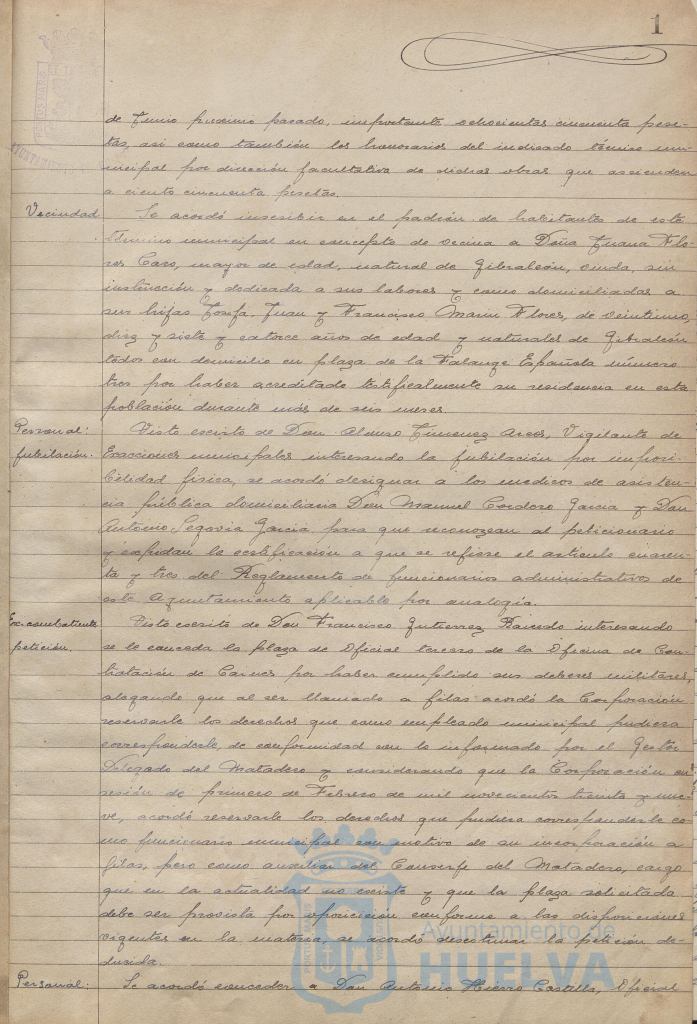 1
de Junio próximo pasado, importante ochocientas cincuenta pese-
tas, asi como también los honorarios del indicado técnico mu-
nicipal por dirección facultativa de dichas obras que ascienden
a ciento cincuenta pesetas.
Vecindad Se acordó inscribir en el padrón de habitantes de este
término municipal en concepto de vecina a Doña Juana Flo-
res Caro, mayor de edad, natural de Gibraleón, viuda, sin
instrucción y dedicada a sus labores y como domiciliadas a
sus hijas Josefa, Juan y Francisco Marin Flores, de veintiuno,
diez y siete y catorce años de edad y naturales de Gibraleón
todos con domicilio en plaza de la Falange Española número
tres por haber acreditado testificalmente su residencia en esta
población durante más de seis meses.
Personal: Visto escrito de Don Alonso Jimenez Arcos, Vigilante de
Jubilación. Exacciones municipales interesando la jubilación por imposi-
bilidad física, se acordó designar a los medicos de asisten-
cia pública domiciliaria Don Manuel Cordero Garcia y Don
Antonio Segovia Garcia para que reconozcan al peticionario
y expidan la certificación a que se refiere el artículo cuaren-
ta y tres del Reglamento de funcionarios administrativos de
este Ayuntamiento aplicable por analogía.
Ex-combatiente Visto escrito de Don Francisco Gutierrez interesando
petición. se le conceda la plaza de Oficial tercero de la Oficina de Con-
tratación de Carnes por haber cumplido sus deberes militares,
alegando que al ser llamado a filas acordó la Corporación
reservarle los derechos que como empleado municipal pudiera
corresponderle, de conformidad con lo informado por el Gestor
Delegado del Matadero y considerando que la Corporación en
sesión de primero de Febrero de mil novecientos treinta y nue-
ve, acordó reservarle los derechos que pudiera corresponderle co-
mo funcionario municipal con motivo de su incorporación a
filas, pero como auxiliar del Conserje del Matadero, cargo
que en la actualidad no existe y que la plaza solicitada
debe ser provista por oposición conforme a las disposiciones
vigentes en la materia, se acordó desestimar la petición de-
ducida.
Personal: Se acordó conceder a Don Antonio Hierro Castilla, Oficial
Ayuntamiento de
HUELVA